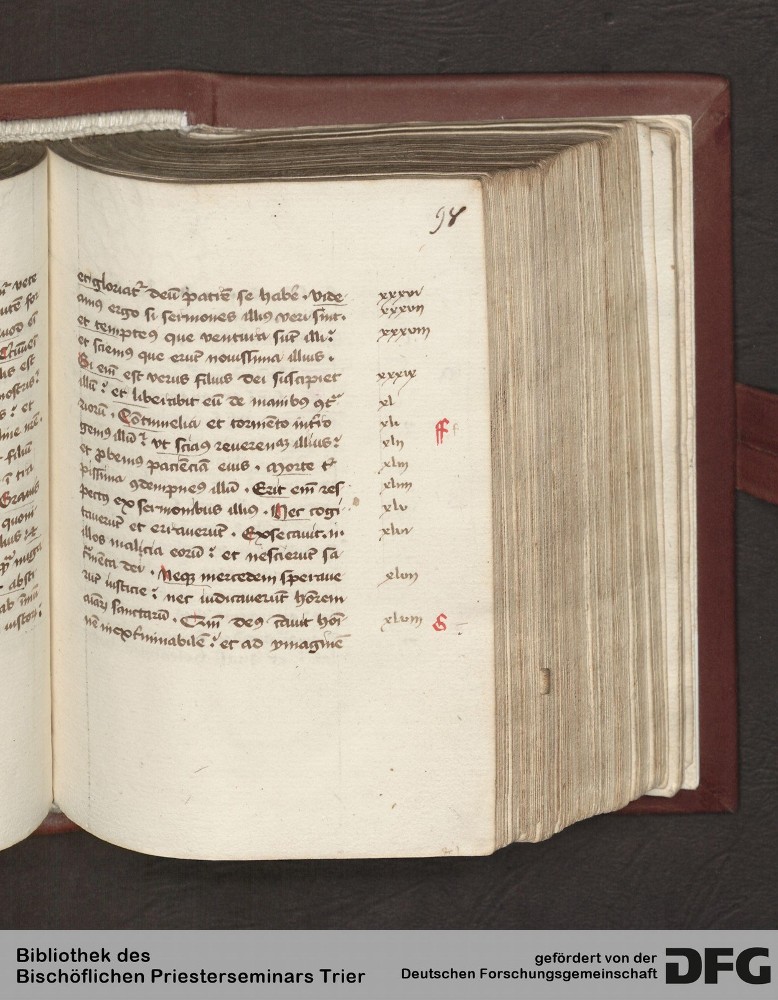 98
et gloriat᷑ deū patrē se habē . vide
amꝰ ergo si sermones illiꝰ veri sint .
et temptemꝰ que ventura sūt illi :
et sciemꝰ que erūt novissima illius .
Si em̄ est verus filius dei suscipiet
illū : et liberabit eū de manibꝰ ꝯt᷑
riorū . Cōtumelia et tormēto int᷑ro
gemꝰ illū : vt sciaꝰ reverenciā illius :
et ꝓbemꝰ pacienciā eius . Morte t᷑
pissima ꝯdempneꝰ illū . Erit em̄ res
pectꝰ ex sermonibus illiꝰ . Hec cogi
taverūt et erraverūt . Exsecavit .n.
illos malicia eorū : et nescierūt sa
cr̄menta dei . Neqꝫ mercedem sperave
rūt iusticie : nec iudicaverūt honorem
aīarū sanctarū . Qm̄ deꝰ c̄avit hoī
nē inext᷑minabilē : et ad ymaginē
xxxvi
xxxvii
xxxviii
xxxix
xl
xli
xlii
xliii
xliiii
xlv
xlvi
xlvii
xlviii
ff
G
Bibliothek des
Bischöflichen Priesterseminars Trier
gefördert von der
Deutschen Forschungsgemeinschaft
DFG